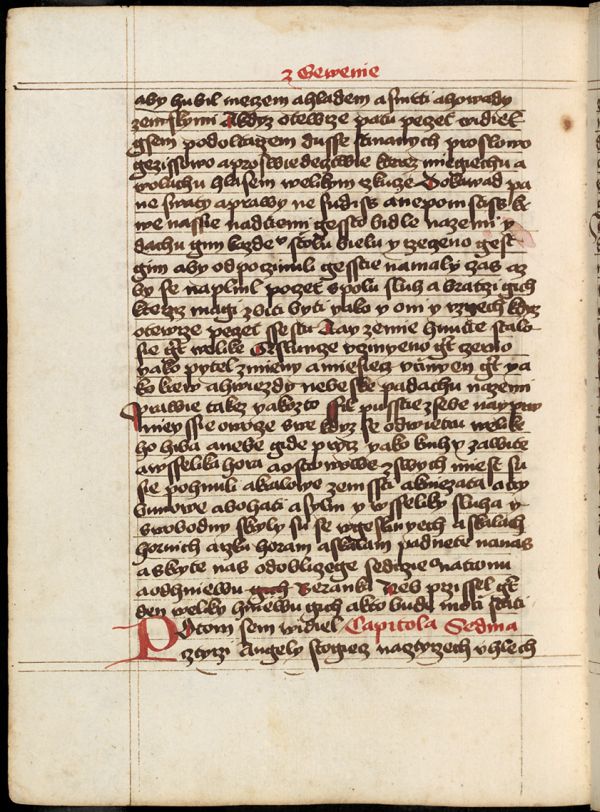 z Gewenie
aby hubil meczem a hladem a smrti a howady
zemskymi A kdyz otewrze patu peczet widiel
gsem pod oltarzem dusse zbitanych pro slowo
gezissowo a pro swiedecztwie kterez miegiechu a
wolachu hlasem welikym rzkucze Dokuwad pa
ne swaty a prawy ne sudiss a nepomstiss kr
we nassie nad tiemi gessto bidle na zemi y
dachu gim kazdemu stolu bielu y rzeczeno gest
gim aby odpoczinuli gesstie na maly czas az
by se naplnil poczet spolu sluh a bratrzi gich
kterziz magi zbiti byti yako y oni y uzrzech kdyz
otewrze peczet ssestu A ay zemie hnutie stalo
sie gest welike Ej slunce uczinyeno gest czerno
yako pytel zinieny a miesiecz uczinyen gest ya
ko krew a hwiezdy nebeske padachu na zemi
prawie takez yakozto fik pusstie z sebe nayprw
nieyssie owocze swe kdyz se od wietru welike
ho hiba a nebe gide pryz yako knihy zawite
a wsselika hora a ostrowowe z swych miest su
sie pohnuli a kralowe zemssti a kniezata a try
bunowe a bohati a sylni y wsseliky sluha y
swobodny skryly su se w geskinyech a skalach
hornich a rzku horam a skalam padnete na nas
a skryte nas od obliczege sediczieho na tronu
a od hniewu gich Beranka Neb przissel gest
den weliky hniewu gich a kto budu moci stati
Potom sem widiel Capitola Sedma
cztyrzi Angely stogiecz na cztyrzech uhlech